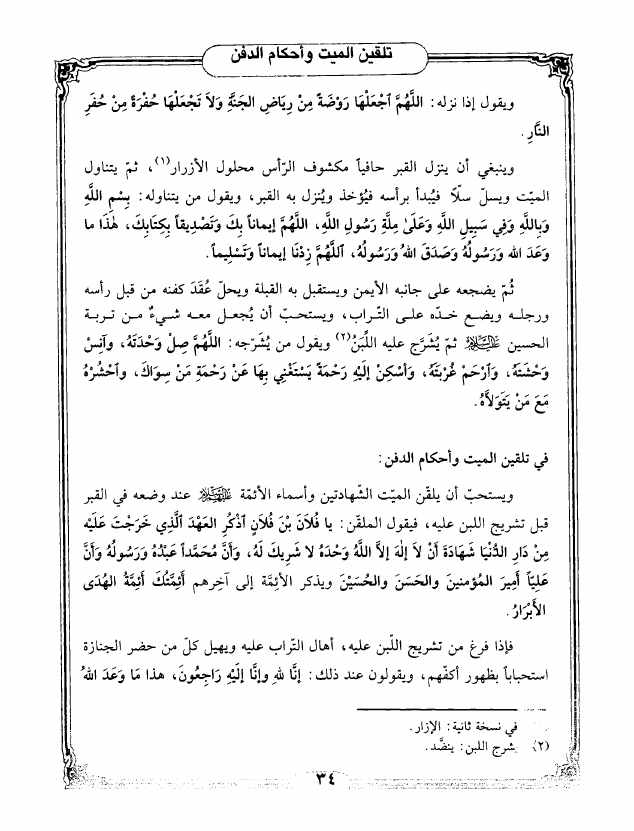 تلقين الميت وأحكام الدفن
ويقول إذا نزله: اللَّهُمَّ اَجْعَلْهَا رَوْضَةً مِنْ رِيَاضِ الجَنَّةِ وَلاَ تَجْعَلْهَا حُفْرَةً مِنْ حُفَرِ
النَّارِ.
وينبغي أن ينزل القبر حافياً مكشوف الرّأس محلول الأزرار(١)، ثمّ يتناول
الميّت ويسلّ سلّاً فيُبدأ برأسه فيُؤخذ ويُنزل به القبر، ويقول من يتناوله: بِسْمِ اللَّهِ
وَبِاللَّهِ وَفِي سَبِيلِ اللَّهِ وَعَلَىٰ مِلَّةِ رَسُولِ اللَّهِ، اللَّهُمَّ إيماناً بِكَ وَتَصْدِيقاً بِكِتَابِكَ، هٰذَا ما
وَعَدَ الله وَرَسُولُهُ وَصَدَقَ اللهُ وَرَسُولُهُ، اَللَّهُمَّ زِدْنَا إيماناً وَتَسْلِيماً.
ثُمّ يضجعه على جانبه الأيمن ويستقبل به القبلة ويحلّ عُقَدَ كفنه من قبل رأسه
ورجله ويضع خدّه على التّراب، ويستحبّ أن يُجعل معه شيءٌ من تربة
الحسين عَلَيْهِ السَّلَام ثمّ يُشَرَّج عليه اللَّبَنُ(٢) ويقول من يُشَرّجه: اللَّهُمَّ صِلْ وَحْدَتَهُ، وآنِسْ
وَحْشَتَهُ، وَاَرْحَمْ غُرْبَتَهُ، وَأَسْكِنْ إلَيْهِ رَحْمَةً يَسْتَغْنِي بِهَا عَنْ رَحْمَةِ مَنْ سِوَاكَ، وَاَحْشُرْهُ
مَعَ مَنْ يَتَوَلاَّهُ.
في تلقين الميت وأحكام الدفن:
ويستحبّ أن يلقّن الميّت الشّهادتين وأسماء الأئمّة عَلَيْهِمُ السَّلَام عند وضعه في القبر
قبل تشريج اللبن عليه، فيقول الملقّن: يا فُلاَنَ بْنَ فُلاَنٍ اَذْكُرِ العَهْدَ اَلَّذِي خَرَجْتَ عَلَيْهِ
مِنْ دَارِ الدُّنْيَا شَهَادَةَ أَنْ لاَ إلٰهَ إلاَّ اللَّهُ وَحْدَهُ لا شَرِيكَ لَهُ، وَأَنَّ مُحَمَّداً عَبْدُهُ وَرَسُولُهُ وَأَنَّ
عَلِيّاً أَمِيرَ المُؤمنينَ والحَسَنَ وَالحُسَيْنَ ويذكر الأئِمَّة إلى آخِرهم أَئِمَّتُكَ أَئِمَّةُ الهُدَى
الأَبْرَارُ.
فإذا فرغ من تشريج اللّبن عليه، أهال التّراب عليه ويهيل كلّ من حضر الجنازة
استحباباً بظهور أكفّهم، ويقولون عند ذلك: إنَّا لِلهِ وإنَّا إلَيْهِ رَاجِعُونَ، هذا مَا وَعَدَ اللهُ
في نسخة ثانية: الإزار.
(٢) يشرج اللبن: ينضّد.
٣٤